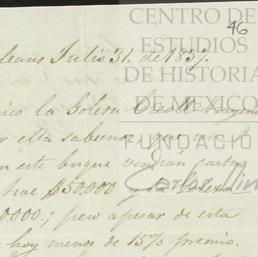 CENTRO DE
ESTUDIOS
DE HISTORIA
DE MEXICO
FUNDACIÓN
Carlos Slim
46
leans Julio 31. de 1837.
ico la Goleta Creole
r ella sabemos, que
en este buque vendrán
trae $50.000 y la
0.000.; pero apesar de esta
hoy menos de 15% premio.